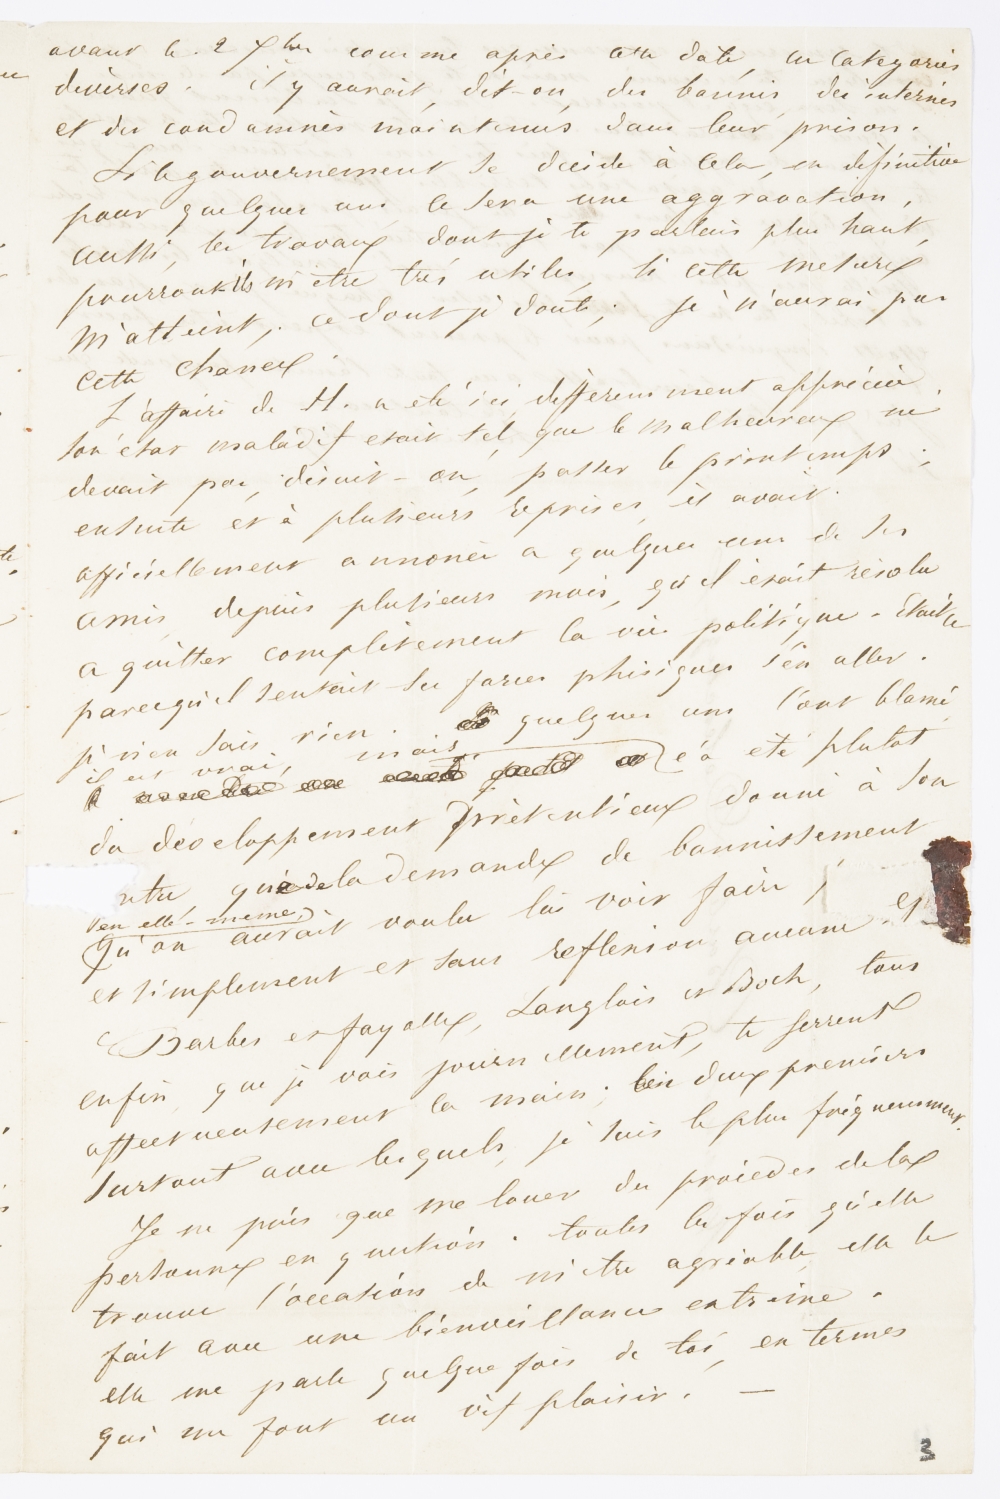 avant le 2 Xbre comme après cette date, en catégories
diverses. il y aurait, dit-on, des bannis, des internés
et des condamnés maintenus dans leur prison.
Si le gouvernement se décide à cela, en définitive
pour quelques uns, ce sera une aggravation,
aussi, les travaux dont je te parlais plus haut,
pourront ils m'être très utiles, si cette mesure
m'atteint, ce dont je doute; je n'aurai pas
cette chance.
L'affaire de H. a été ici, différemment appréciée.
son état maladif était tel, que le malheureux ne
devait pas, disait-on, passer le printemps;
ensuite et à plusieurs reprises, il avait
officiellement annoncé a quelques uns de ses
amis, depuis plusieurs mois, qu'il était résolu
a quitter complètement la vie politique. Etait ce
parcequ'il sentait ses forces phisiques s'en aller.
je n'en sais rien. quelques uns l'ont blamé,
il est vrai, mais
ç'a été plutot
du développement prétentieux donné à son
ntre, que de la demande de bannissement
en elle-même,
Qu'on aurait voulu lui voir faire,
et simplement et sans reflexion aucune
Barbès et fayolle, Langlois et Boch, tous
enfin, que je vois journellement, te serrent
affectueusement la main; les deux premiers
surtout avec lesquels, je suis le plus fréquemment.
Je ne puis que me louer des procédés de la
personne en question. toutes les fois qu'elle
trouve l'occasion de m'être agréable, elle le
fait avec une bienveillance extrême.
elle me parle quelque fois de toi, en termes
qui me font un vif plaisir. —
3